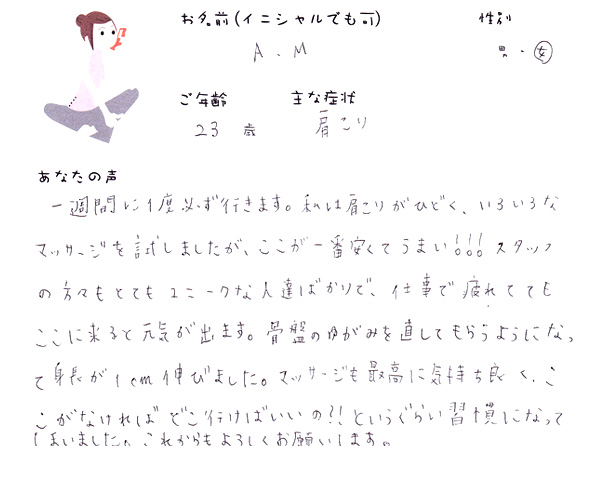 お名前(イニシャルでも可)
性別
A . M
男 ・ 女
ご年齢
主な症状
23 歳
肩こり
あなたの声
一週間に1度必ず行きます。私は肩こりがひどく、いろいろな
マッサージを試しましたが、ここが一番安くてうまい!!! スタッフ
の方々もとてもユニークな人達ばかりで、仕事で疲れてても
ここに来ると元気が出ます。骨盤のゆがみを直してもらうようになっ
て身長が1cm伸びました。マッサージも最高に気持ち良く、こ
こがなければどこ行けばいいの?!というぐらい習慣になって
しまいました。これからもよろしくお願いします。